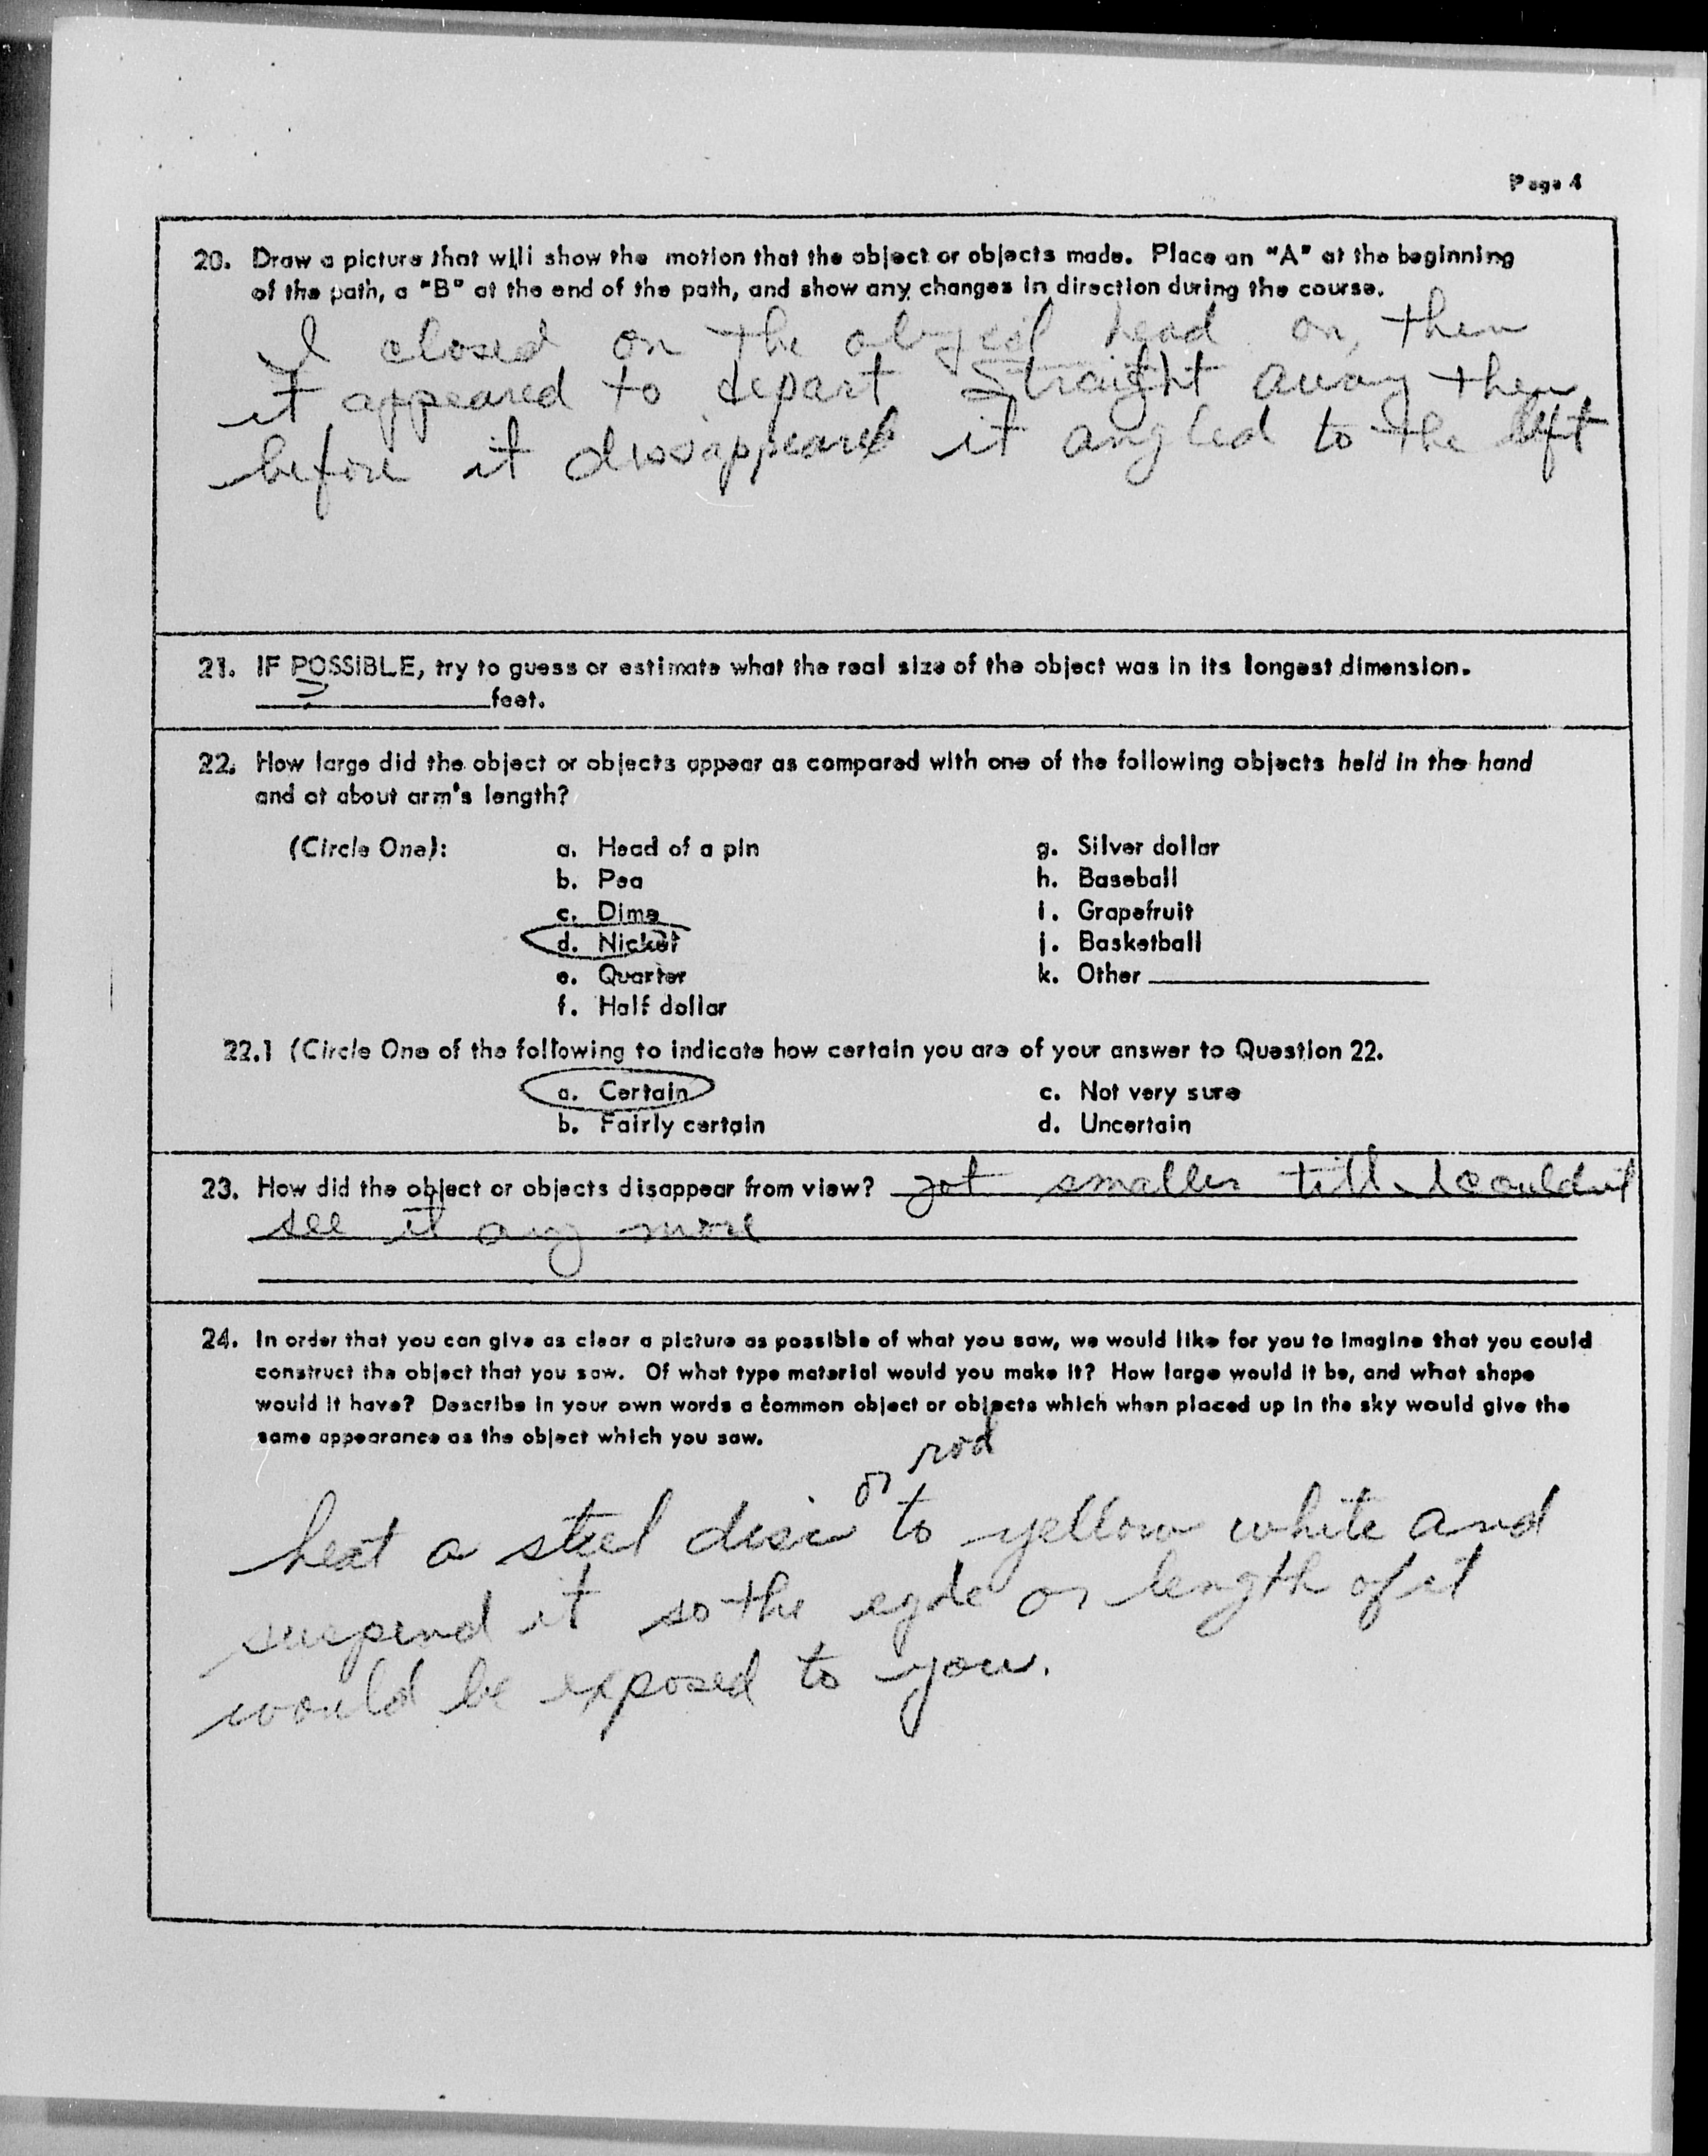 Page 4
20. Draw a picture that will show the motion that the object or objects made. Place an "A" at the beginning
of the path, a "B" at the end of the path, and show any changes in direction during the course.
I closed on the object head on, then
it appeared to depart straight away then
before it dissappeared it angled to the left
21. IF POSSIBLE, try to guess or estimate what the real size of the object was in its longest dimension.
? feet.
22. How large did the object or objects appear as compared with one of the following objects held in the hand
and at about arm's length?
(Circle One): a. Head of a pin g. Silver dollar
b. Pea h. Baseball
c. Dime i. Grapefruit
d. Nickel j. Basketball
e. Quarter k. Other
f. Half dollar
22.1 (Circle One of the following to indicate how certain you are of your answer to Question 22.
a. Certain c. Not very sure
b. Fairly certain d. Uncertain
23. How did the object or objects disappear from view? got smaller till I couldnt
see it any more
24. In order that you can give as clear a picture as possible of what you saw, we would like for you to imagine that you could
construct the object that you saw. Of what type material would you make it? How large would it be, and what shape
would it have? Describe in your own words a common object or objects which when placed up in the sky would give the
same appearance as the object which you saw.
or rod
heat a steel disc to yellow white and
suspend it so the egde or length of it
would be exposed to you.